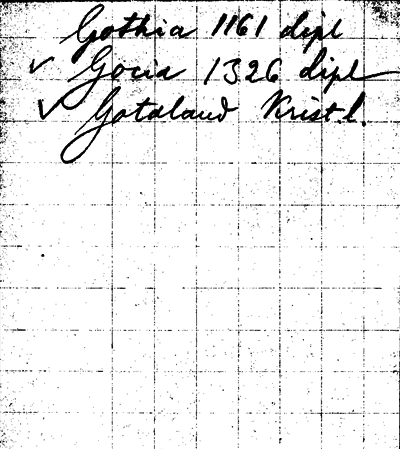 Gothia 1161 dipl
✓ Gocia 1326 dipl
✓ Gotaland Krist.l.